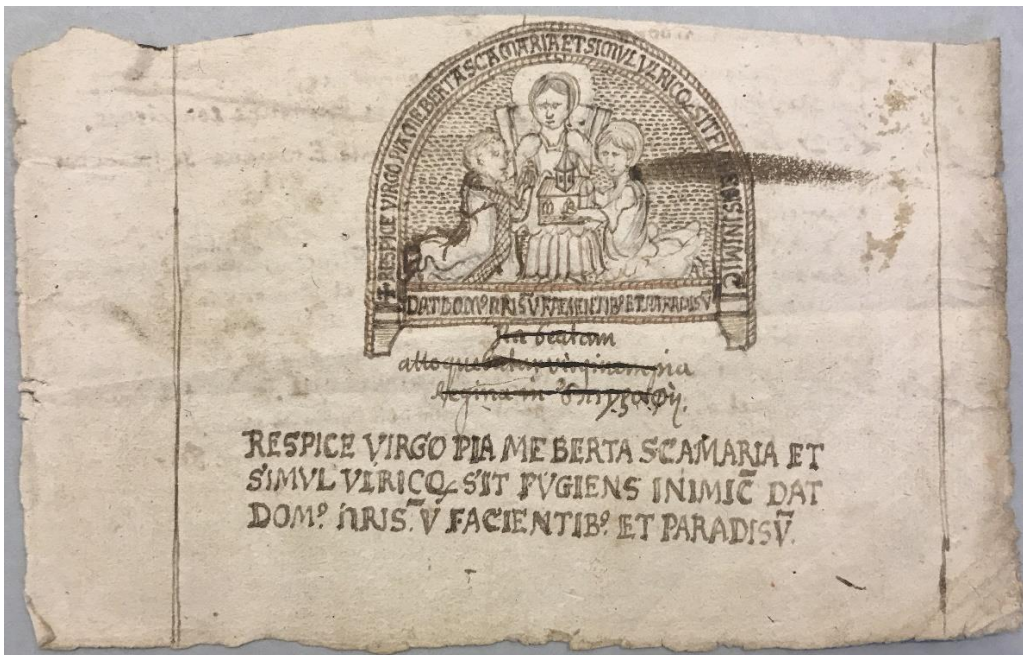 ✝RESPICE VIRGO PIA ME BERTA SCA MARIA ET SIMVL VLRICQ SIT INIMIC̄
DAT DOMº NRIS V̄ FACIENTIBº ET PARADISV̄
Ita beatam
alloquebatur virginem pia
Regina in
RESPICE VIRGO PIA ME BERTA SCAMARIA ET
SIMVL VLRICQ SIT FVGIENS INIMIC̄ DAT
DOMº NRIS V̄ FACIENTIBº ET PARADISV̄.